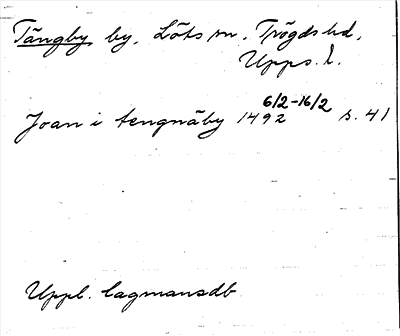 Tängby by, Löts sn, Trögds hd,
Upps. l.
Joan i tengnäby 1492 6/2-16/2 s. 41
Uppl. lagmansdb